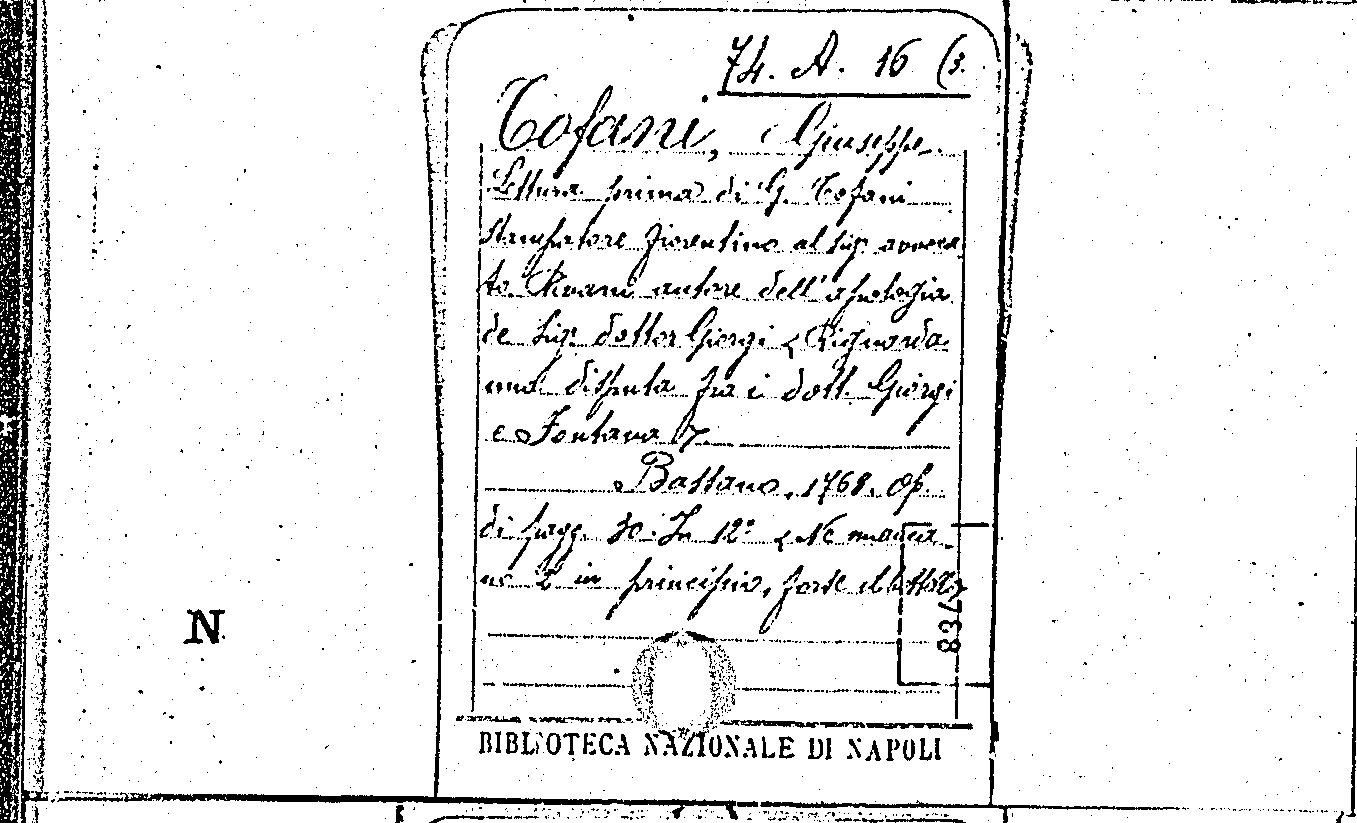 74. A. 16 (3.
Tofani, Giuseppe.
Lettera prima di G. Tofani
stampatore fiorentino al sig. avvoca
to autore dell'apologia
de sig. dottor Giorgi [Riguarda
una disputa fra i dott. Giorgi
e Fontana].
Bassano, 1768. Op.
di pagg. 30. In 12° in principio, forse
8347
N
BIBLIOTECA NAZIONALE DI NAPOLI